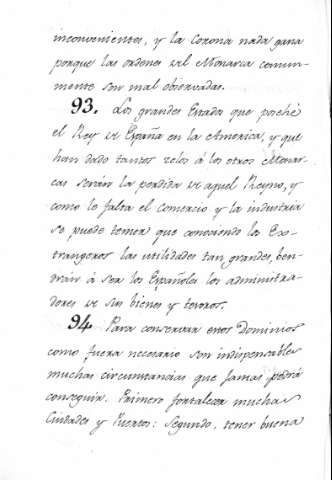 inconvenientes, y la Corona nada gana
porque las ordenes del Monarca comun-
mente son mal observadas.
93. Los grandes Estados que poshé
el Rey de España en la America, y que
han dado tantos zelos á los otros Monar-
cas serán la perdida de aquel Reyno, y
como le falta el comercio y la industria
se puede temer que conociendo los Ex-
trangeros las utilidades tan grandes, ben-
drán á ser los Españoles los administra-
dores de sus bienes y tesoros.
94. Para conservar estos Dominios
como fuera necesario son indispensables
muchas circunstancias que jamas podrá
conseguir. Primero fortalezer muchas
Ciudades y Puertos: Segundo, tener buena